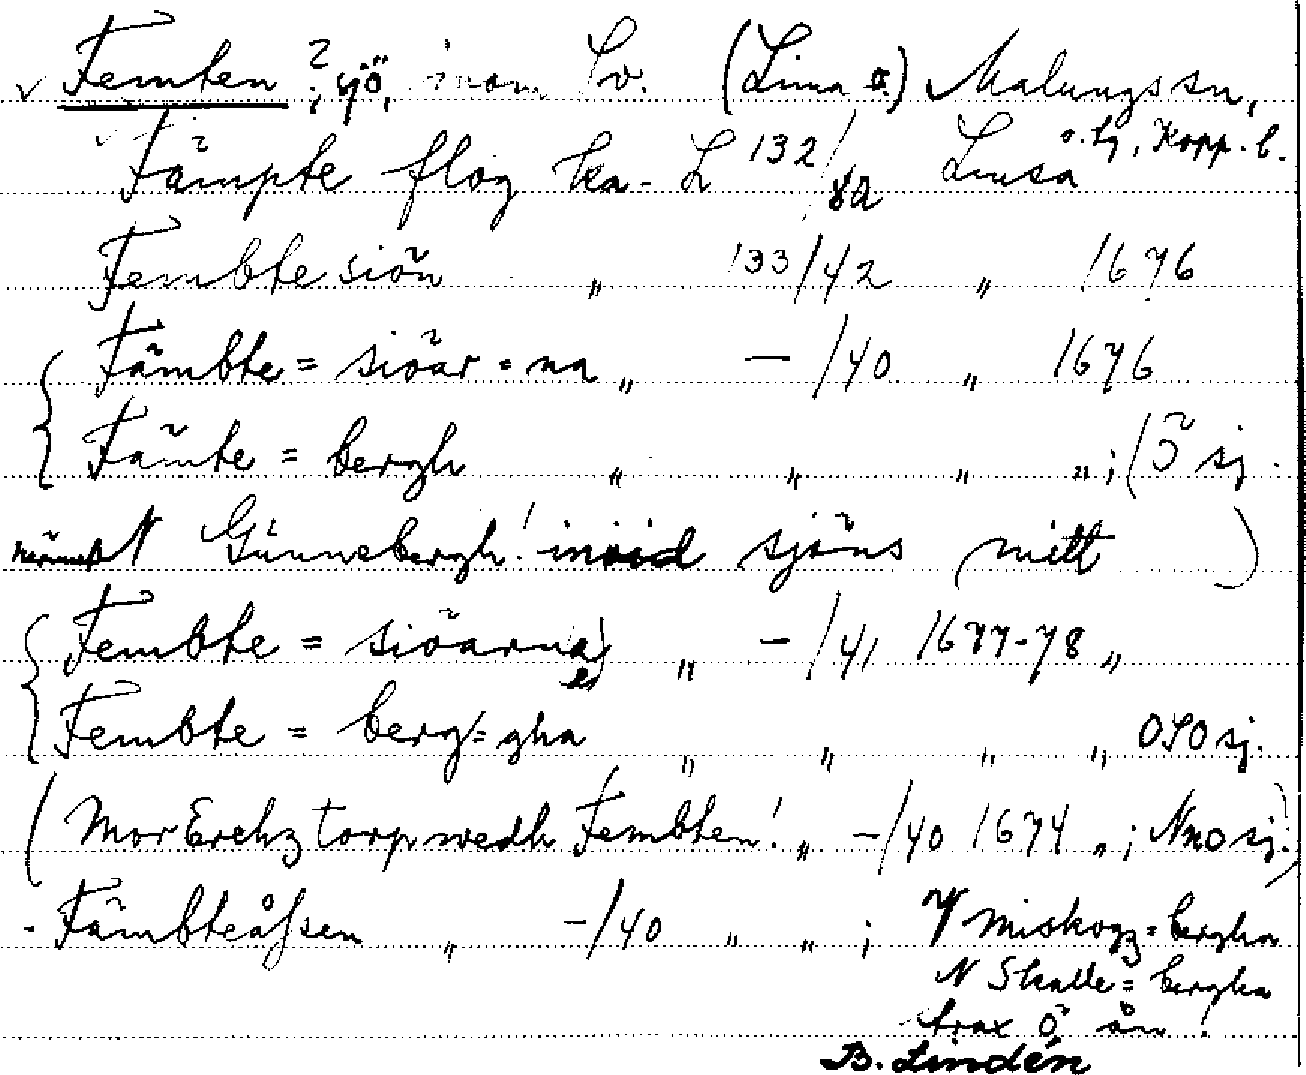 ✓ Femten ?; sjö, inom Lv. (Lima o.) Malungs sn,
Fämpte flog ka. L 132/ Limsa o. tg, Kopp. l.
Fembte siön " 133/42 " 1676
Fämbte = siöar = na " — /40 " 1676
Fämte = bergh " " " " ; (Ö sj.
N Günnebergh! invid sjöns mitt )
Fembte = siöarna " — /41 1677-78 "
Fembte = berg = gha " " " " OSO sj.
(Mor Erchz torp wedh Fembten! " —/40 1674 " ; NNO sj.)
- Fämbteåssen " —/40 " " ; V miskogz = bergha
N Skalle = bergha
strax Ö ån!
B. Lindén